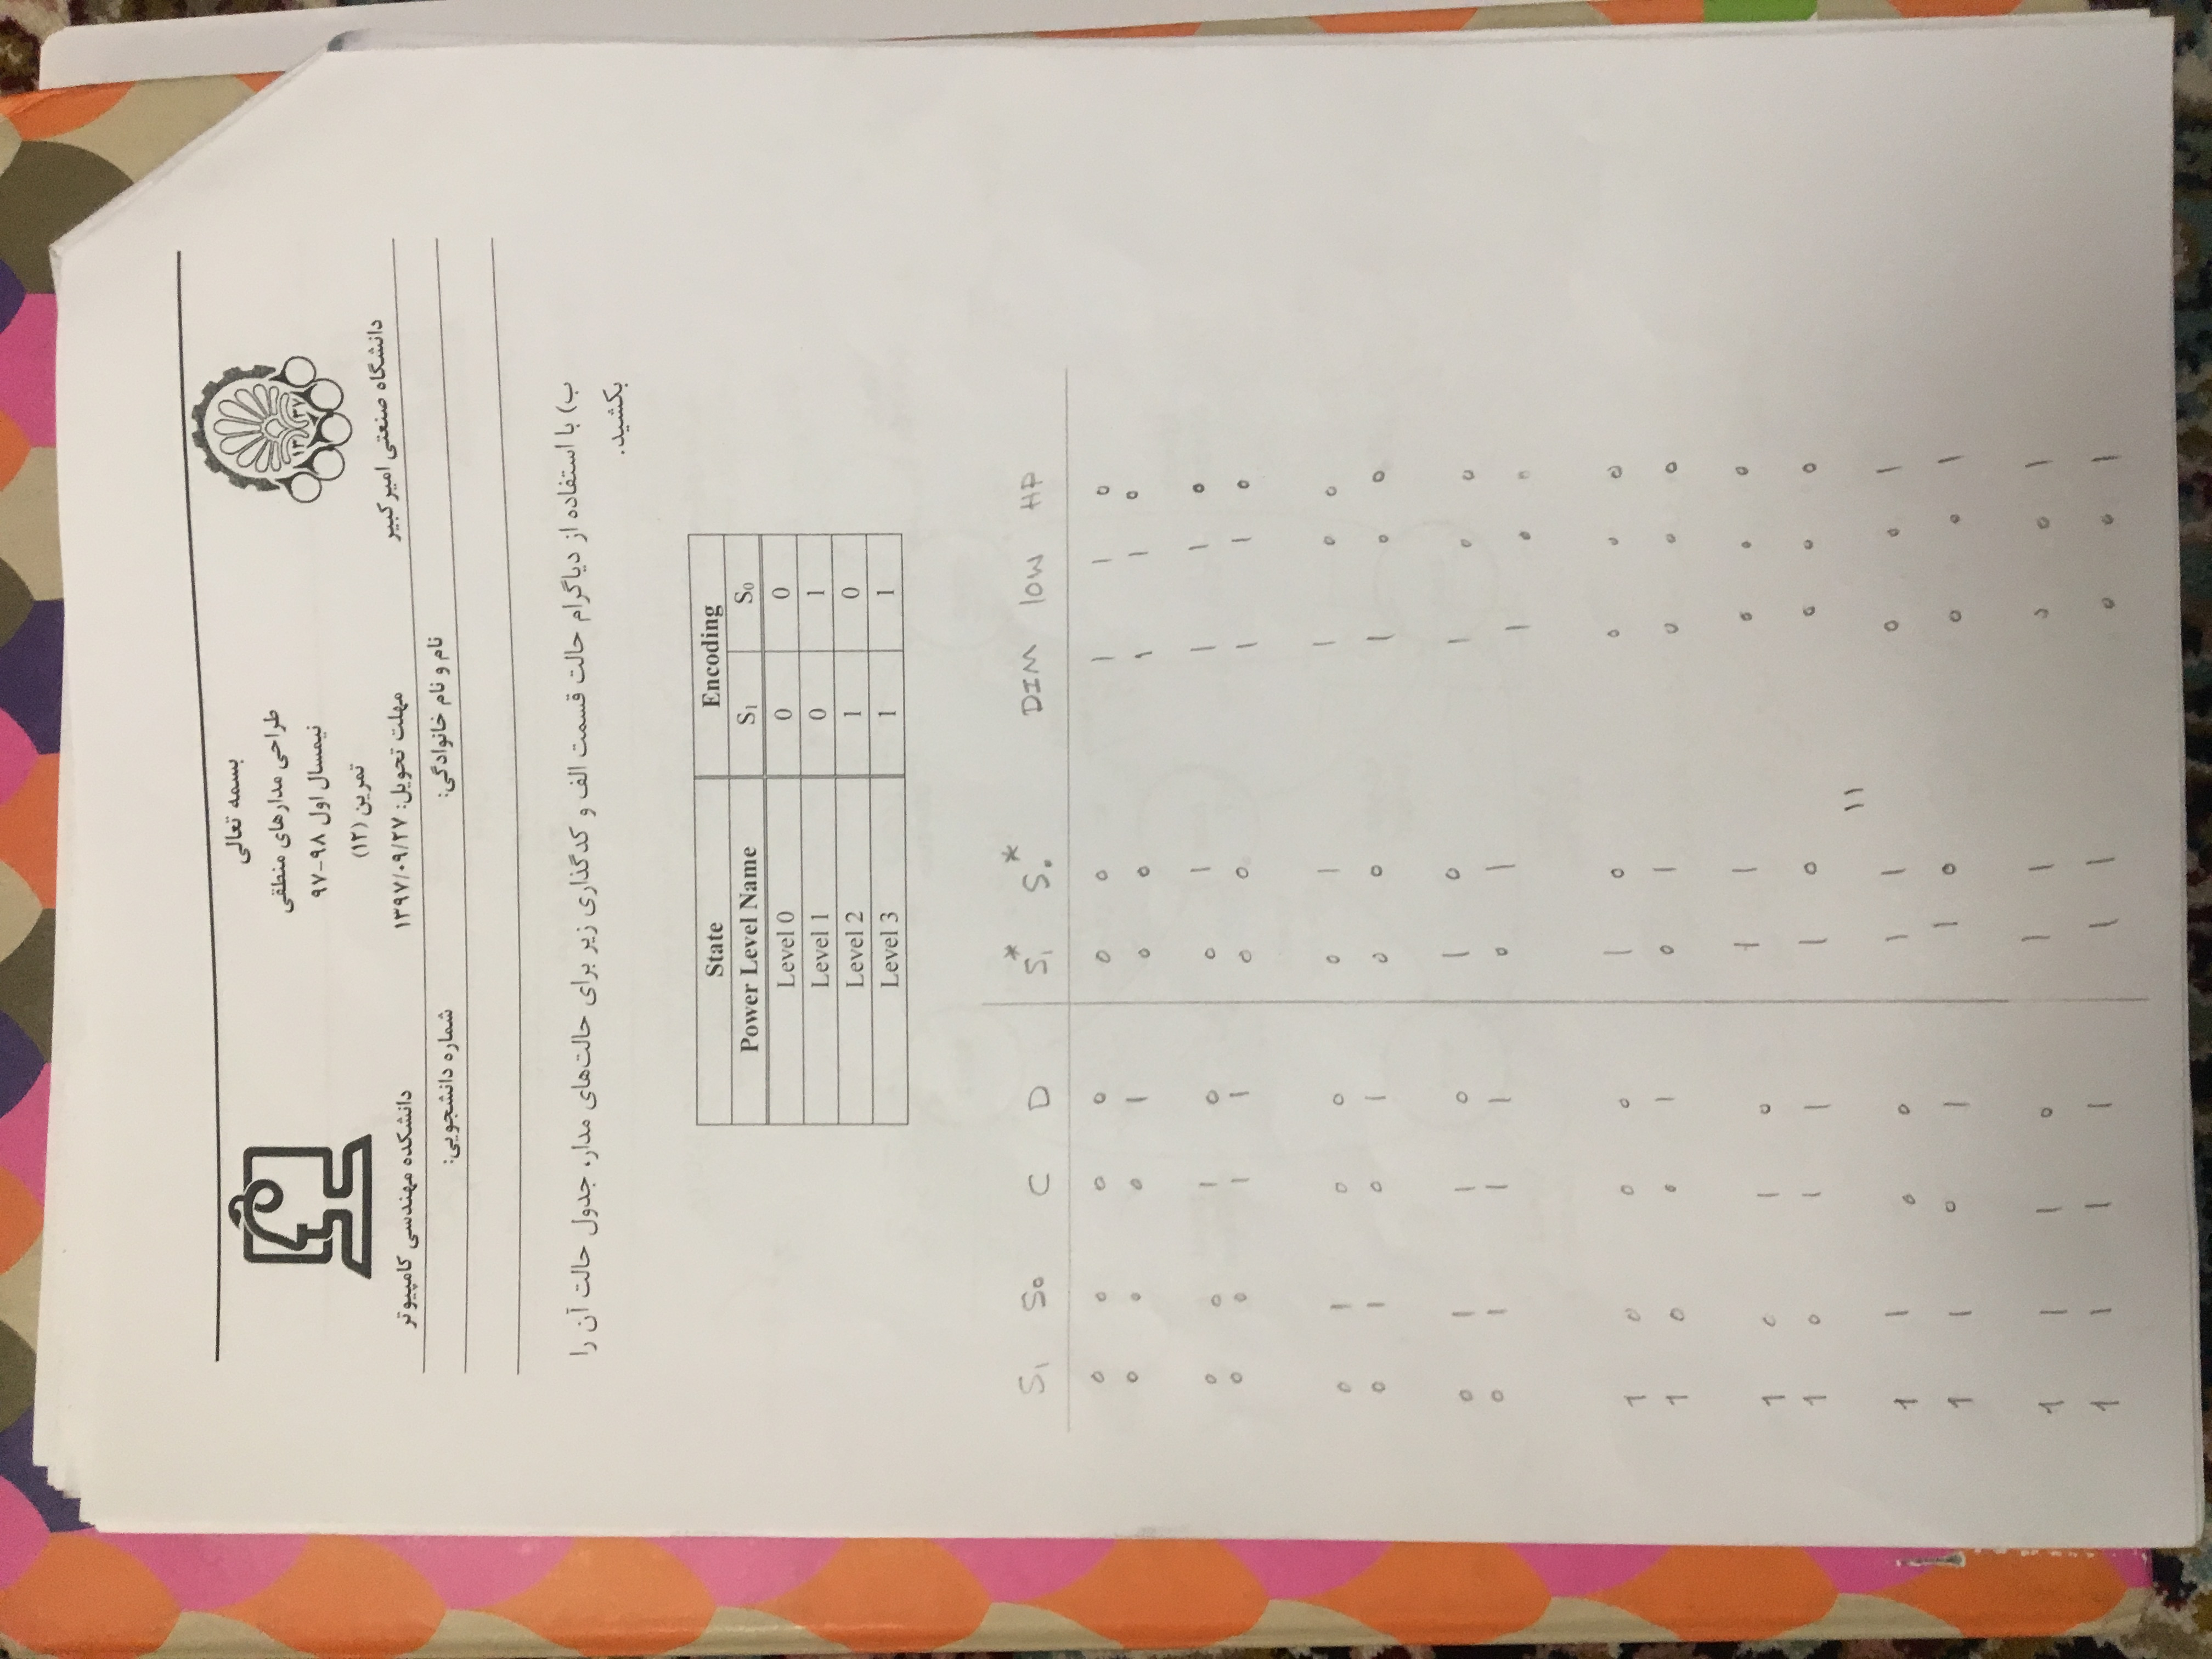 بسمه تعالی
طراحی مدارهای منطقی
نیمسال اول ۹۸-۹۷
تمرین (۱۲)
مهلت تحویل: ۱۳۹۷/۰۹/۲۷
۱۳ ۳۷
دانشگاه صنعتی امیرکبیر
دانشکده مهندسی کامپیوتر
نام و نام خانوادگی: شماره دانشجویی:
ب) با استفاده از دیاگرام حالت قسمت الف و کدگذاری زیر برای حالت‌های مدار، جدول حالت آن را
بکشید.
State Encoding
Power Level Name S₁ S₀
Level 0 0 0
Level 1 0 1
Level 2 1 0
Level 3 1 1
S₁ S₀ C D S₁* S₀* DIM low HP
0 0 0 0 0 0 1 1 0
0 0 0 1 0 0 1 1 0
0 0 1 0 0 1 1 1 0
0 0 1 1 0 0 1 1 0
0 1 0 0 0 1 1 0 0
0 1 0 1 0 0 1 0 0
0 1 1 0 1 0 1 0 0
0 1 1 1 0 1 1 0 0
1 0 0 0 1 0 0 0 0
1 0 0 1 0 1 0 0 0
1 0 1 0 1 1 0 0 0
1 0 1 1 1 0 0 0 0
۱۱
1 1 0 0 1 1 0 0 1
1 1 0 1 1 0 0 0 1
1 1 1 0 1 1 0 0 1
1 1 1 1 1 1 0 0 1